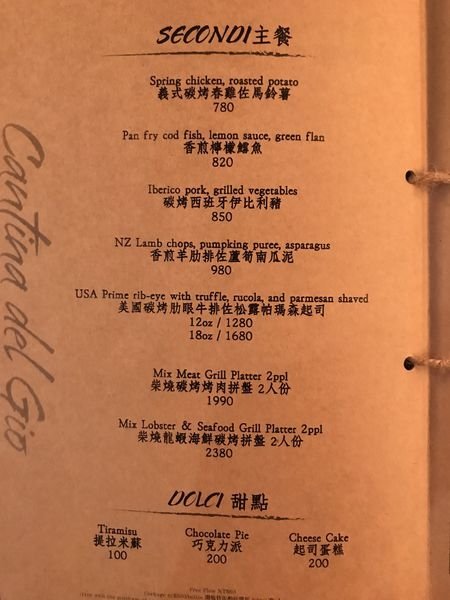 SECONDI主餐
Spring chicken, roasted potato
義式碳烤春雞佐馬鈴薯
780
Pan fry cod fish, lemon sauce, green flan
香煎檸檬鱈魚
820
Iberico pork, grilled vegetables
碳烤西班牙伊比利豬
850
NZ Lamb chops, pumpking puree, asparagus
香煎羊肋排佐蘆筍南瓜泥
980
USA Prime rib-eye with truffle, rucola, and parmesan shaved
美國碳烤肋眼牛排佐松露帕瑪森起司
12oz / 1280
18oz / 1680
Mix Meat Grill Platter 2ppl
柴燒碳烤烤肉拼盤 2人份
1990
Mix Lobster & Seafood Grill Platter 2ppl
柴燒龍蝦海鮮碳烤拼盤 2人份
2380
Cantina del Gio
DOLCI 甜點
Tiramisu
提拉米蘇
100
Chocolate Pie
巧克力派
200
Cheese Cake
起司蛋糕
200